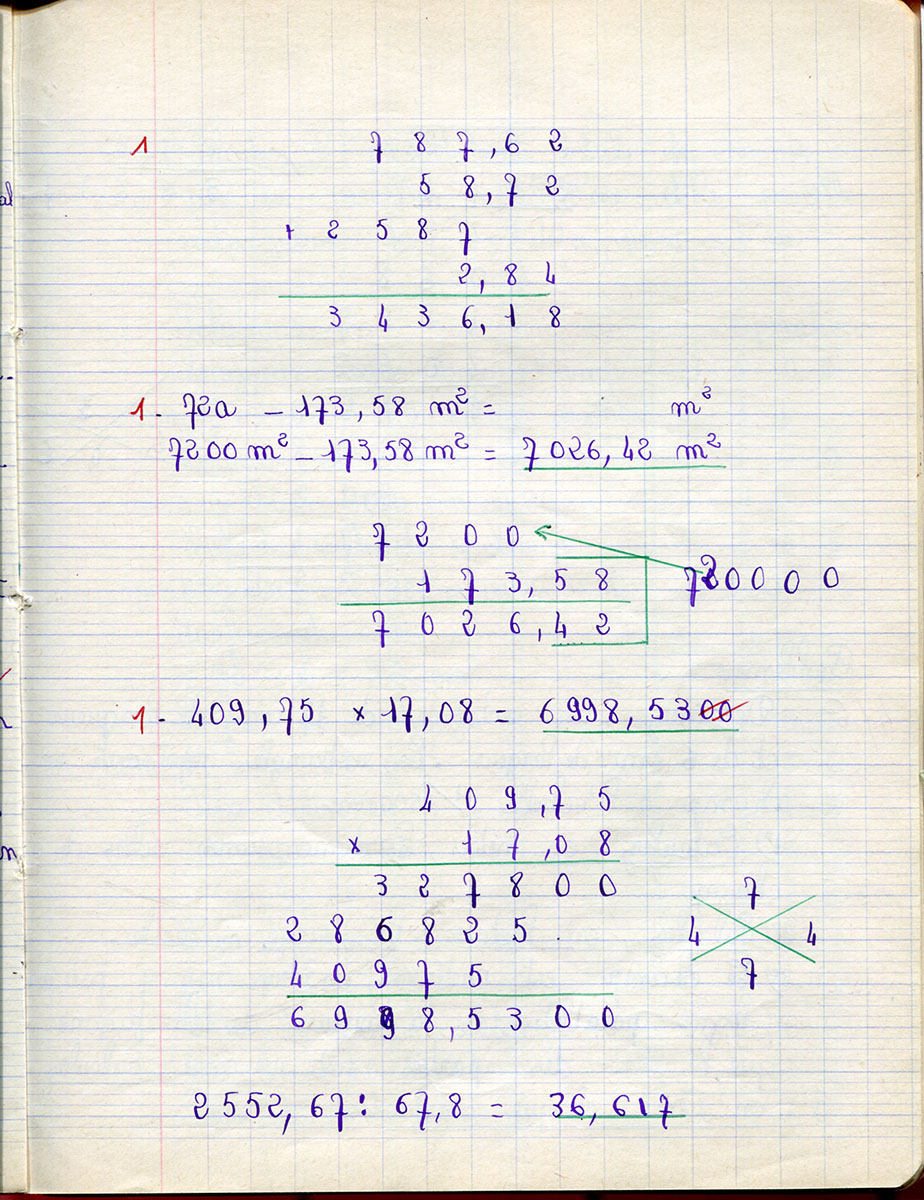 1 787,62
58,72
+ 2587
2,84
3436,18
1. 72a - 173,58 m² = m²
7200 m² - 173,58 m² = 7026,42 m²
7200
173,58
7026,42
720000
1. 409,75 × 17,08 = 6998,5300
409,75
× 17,08
327800
286825 .
40975
6998,5300
7
4 4
7
2552,67 : 67,8 = 36,617